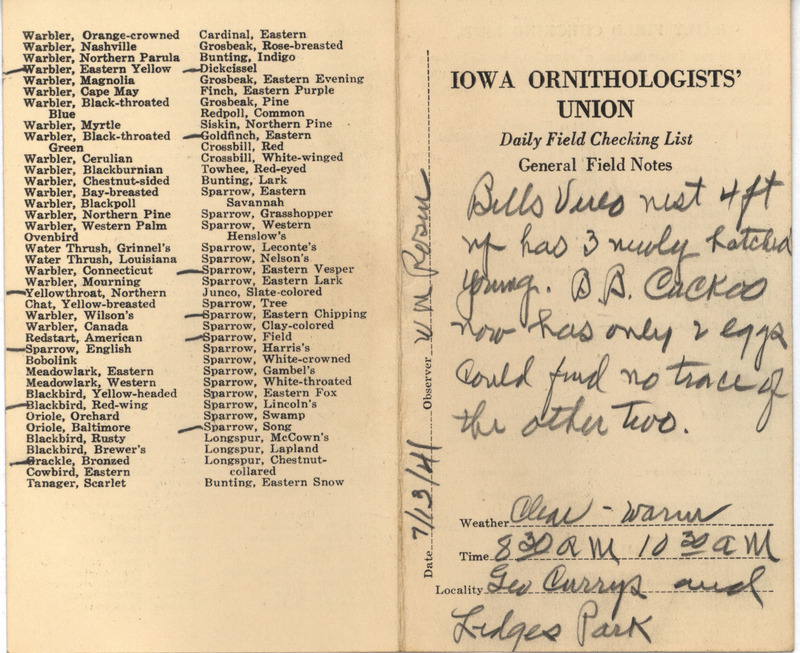 Warbler, Orange-crowned
Warbler, Nashville
Warbler, Northern Parula
Warbler, Eastern Yellow
Warbler, Magnolia
Warbler, Cape May
Warbler, Black-throated
Blue
Warbler, Myrtle
Warbler, Black-throated
Green
Warbler, Cerulian
Warbler, Blackburnian
Warbler, Chestnut-sided
Warbler, Bay-breasted
Warbler, Blackpoll
Warbler, Northern Pine
Warbler, Western Palm
Ovenbird
Water Thrush, Grinnel's
Water Thrush, Louisiana
Warbler, Connecticut
Warbler, Mourning
Yellowthroat, Northern
Chat, Yellow-breasted
Warbler, Wilson's
Warbler, Canada
Redstart, American
Sparrow, English
Bobolink
Meadowlark, Eastern
Meadowlark, Western
Blackbird, Yellow-headed
Blackbird, Red-wing
Oriole, Orchard
Oriole, Baltimore
Blackbird, Rusty
Blackbird, Brewer's
Grackle, Bronzed
Cowbird, Eastern
Tanager, Scarlet
Cardinal, Eastern
Grosbeak, Rose-breasted
Bunting, Indigo
Dickcissel
Grosbeak, Eastern Evening
Finch, Eastern Purple
Grosbeak, Pine
Redpoll, Common
Siskin, Northern Pine
Goldfinch, Eastern
Crossbill, Red
Crossbill, White-winged
Towhee, Red-eyed
Bunting, Lark
Sparrow, Eastern
Savannah
Sparrow, Grasshopper
Sparrow, Western
Henslow's
Sparrow, Leconte's
Sparrow, Nelson's
Sparrow, Eastern Vesper
Sparrow, Eastern Lark
Junco, Slate-colored
Sparrow, Tree
Sparrow, Eastern Chipping
Sparrow, Clay-colored
Sparrow, Field
Sparrow, Harris's
Sparrow, White-crowned
Sparrow, Gambel's
Sparrow, White-throated
Sparrow, Eastern Fox
Sparrow, Lincoln's
Sparrow, Swamp
Sparrow, Song
Longspur, McCown's
Longspur, Lapland
Longspur, Chestnut-
collared
Bunting, Eastern Snow
Date 7/13/41 Observer W M Rosen
IOWA ORNITHOLOGISTS'
UNION
Daily Field Checking List
General Field Notes
Bells Vireo nest 4 ft
up has 3 newly hatched
young. B B. Cuckoo
now has only 2 eggs
Could find no trace of
the other two.
Weather Clear - warm
Time 8 30 A M 10 30 A M
Locality Geo Currys and
Ledges Park